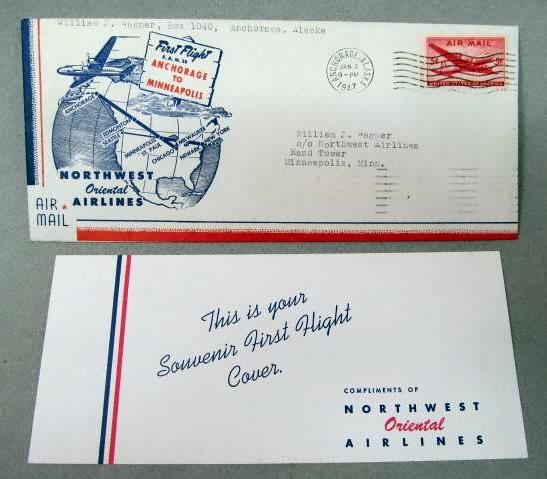 William J. Wagner, Box 1040, Anchorage, Alaska
First Flight
F.A.M. 28
ANCHORAGE
TO
MINNEAPOLIS
ANCHORAGE
EDMONTON
SEATTLE
MINNEAPOLIS
ST. PAUL
MILWAUKEE
CHICAGO
NEW YORK
NEWARK
NORTHWEST
Oriental
AIRLINES
AIR
MAIL
ANCHORAGE, ALASKA
JAN 2
9-PM
1947
AIR MAIL
5¢ 5¢
UNITED STATES OF AMERICA
William J. Wagner
c/o Northwest Airlines
Rand Tower
Minneapolis, Minn.
This is your
Souvenir First Flight
Cover.
COMPLIMENTS OF
NORTHWEST
Oriental
AIRLINES